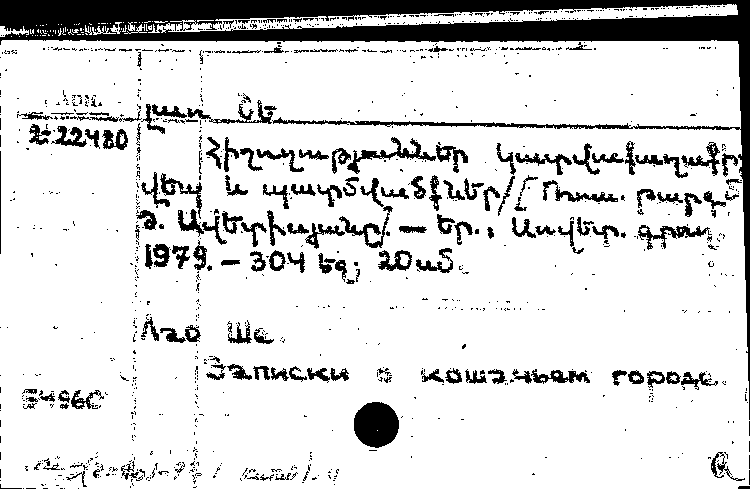 Арм.
լաո Շե.
2-22480
Հիշողություններ կատվաքաղաքի
վեպ և պատմվածքներ/[Ռուս. թարգմ
Ավետիսյանը/. — Եր.: Սովետ. գրող,
1979. — 304 էջ; 20սմ.
Лао Шэ.
Записки о кошачьем городе.